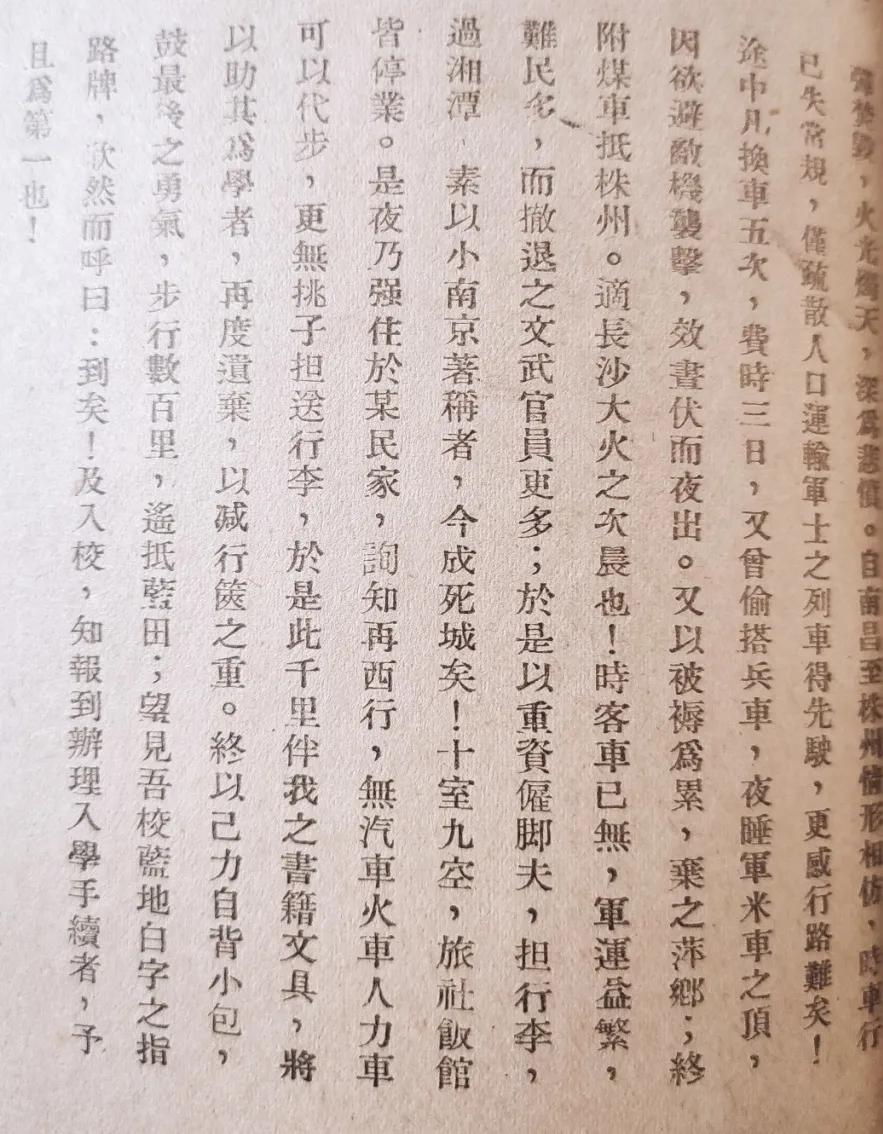 彈焚毀，火光燭天，深爲悲憤。自南昌至株州情形相仿，時車行
已失常規，僅疏散人口運輸軍士之列車得先駛，更感行路難矣！
途中凡換車五次，費時三日，又曾偷搭兵車，夜睡軍米車之頂，
因欲避敵機襲擊，效晝伏而夜出。又以被褥爲累，棄之萍鄉；終
附煤車抵株州。適長沙大火之次晨也！時客車已無，軍運益繁，
難民多，而撤退之文武官員更多；於是以重資僱脚夫，担行李，
過湘潭，素以小南京著稱者，今成死城矣！十室九空，旅社飯館
皆停業。是夜乃强住於某民家，詢知再西行，無汽車火車人力車
可以代步，更無挑子担送行李，於是此千里伴我之書籍文具，將
以助其爲學者，再度遺棄，以減行篋之重。終以己力自背小包，
鼓最後之勇氣，步行數百里，遙抵藍田；望見吾校藍地白字之指
路牌，歡然而呼曰：到矣！及入校，知報到辦理入學手續者，予
且爲第一也！